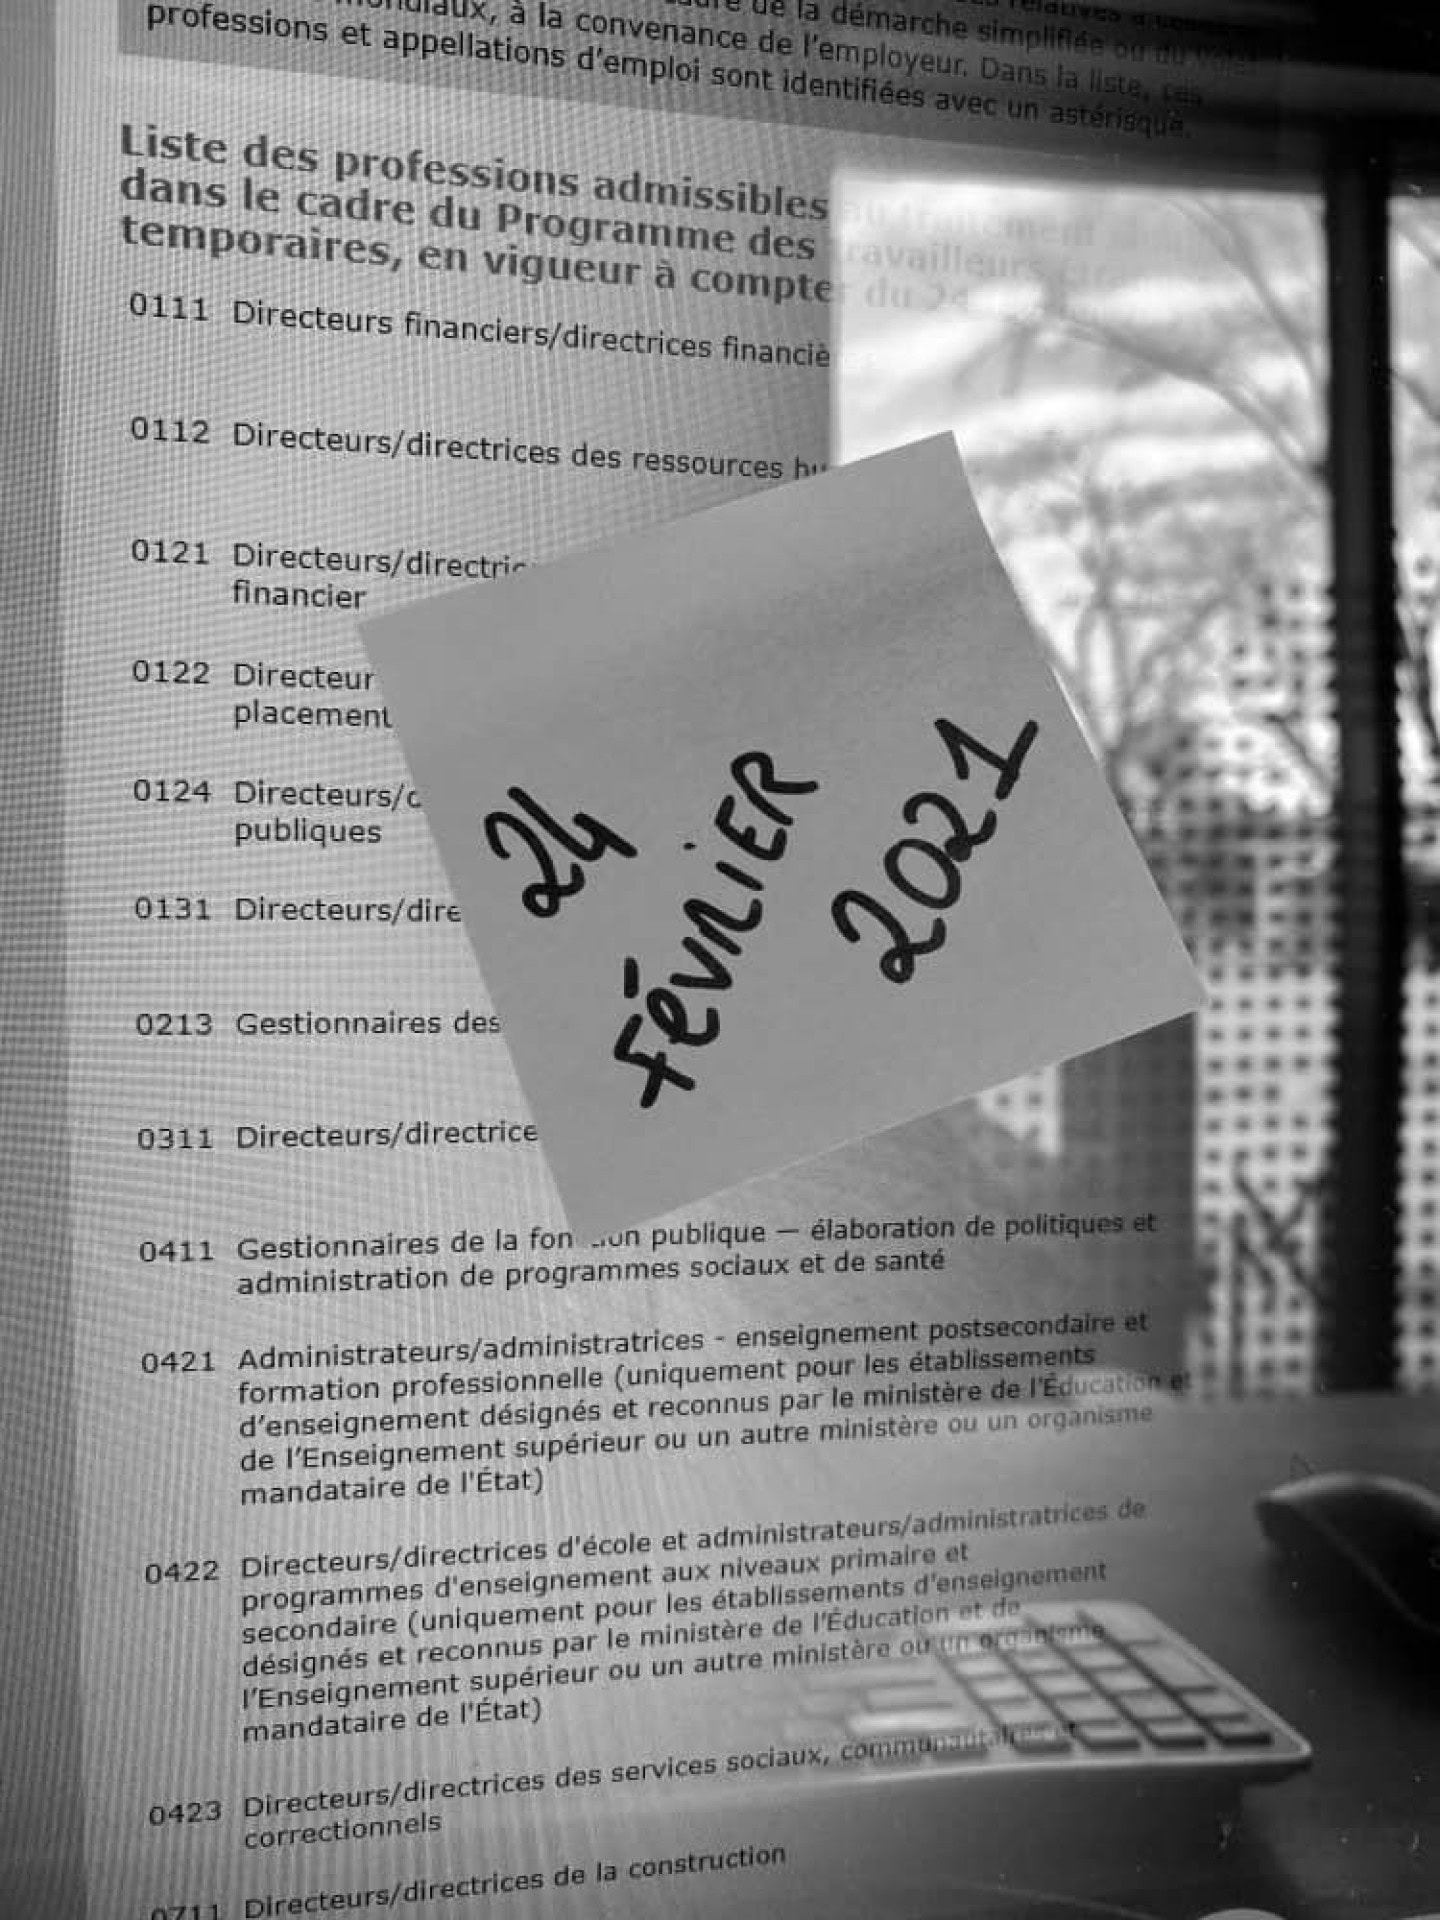 de la démarche simplifiée ou du volet
mondiaux, à la convenance de l'employeur. Dans la liste, ces
professions et appellations d'emploi sont identifiées avec un astérisque.
Liste des professions admissibles au traitement
dans le cadre du Programme des travailleurs
temporaires, en vigueur à compter du 24
0111 Directeurs financiers/directrices financiè
0112 Directeurs/directrices des ressources hu
0121 Directeurs/directric
financier
0122 Directeur
placement
0124 Directeurs/d
publiques
0131 Directeurs/dire
0213 Gestionnaires des
0311 Directeurs/directrice
24
FÉVRIER
2021
0411 Gestionnaires de la fon ion publique — élaboration de politiques et
administration de programmes sociaux et de santé
0421 Administrateurs/administratrices - enseignement postsecondaire et
formation professionnelle (uniquement pour les établissements
d'enseignement désignés et reconnus par le ministère de l'Éducation et
de l'Enseignement supérieur ou un autre ministère ou un organisme
mandataire de l'État)
0422 Directeurs/directrices d'école et administrateurs/administratrices de
programmes d'enseignement aux niveaux primaire et
secondaire (uniquement pour les établissements d'enseignement
désignés et reconnus par le ministère de l'Éducation et de
l'Enseignement supérieur ou un autre ministère ou un organisme
mandataire de l'État)
0423 Directeurs/directrices des services sociaux, communautaires et
correctionnels
0711 Directeurs/directrices de la construction